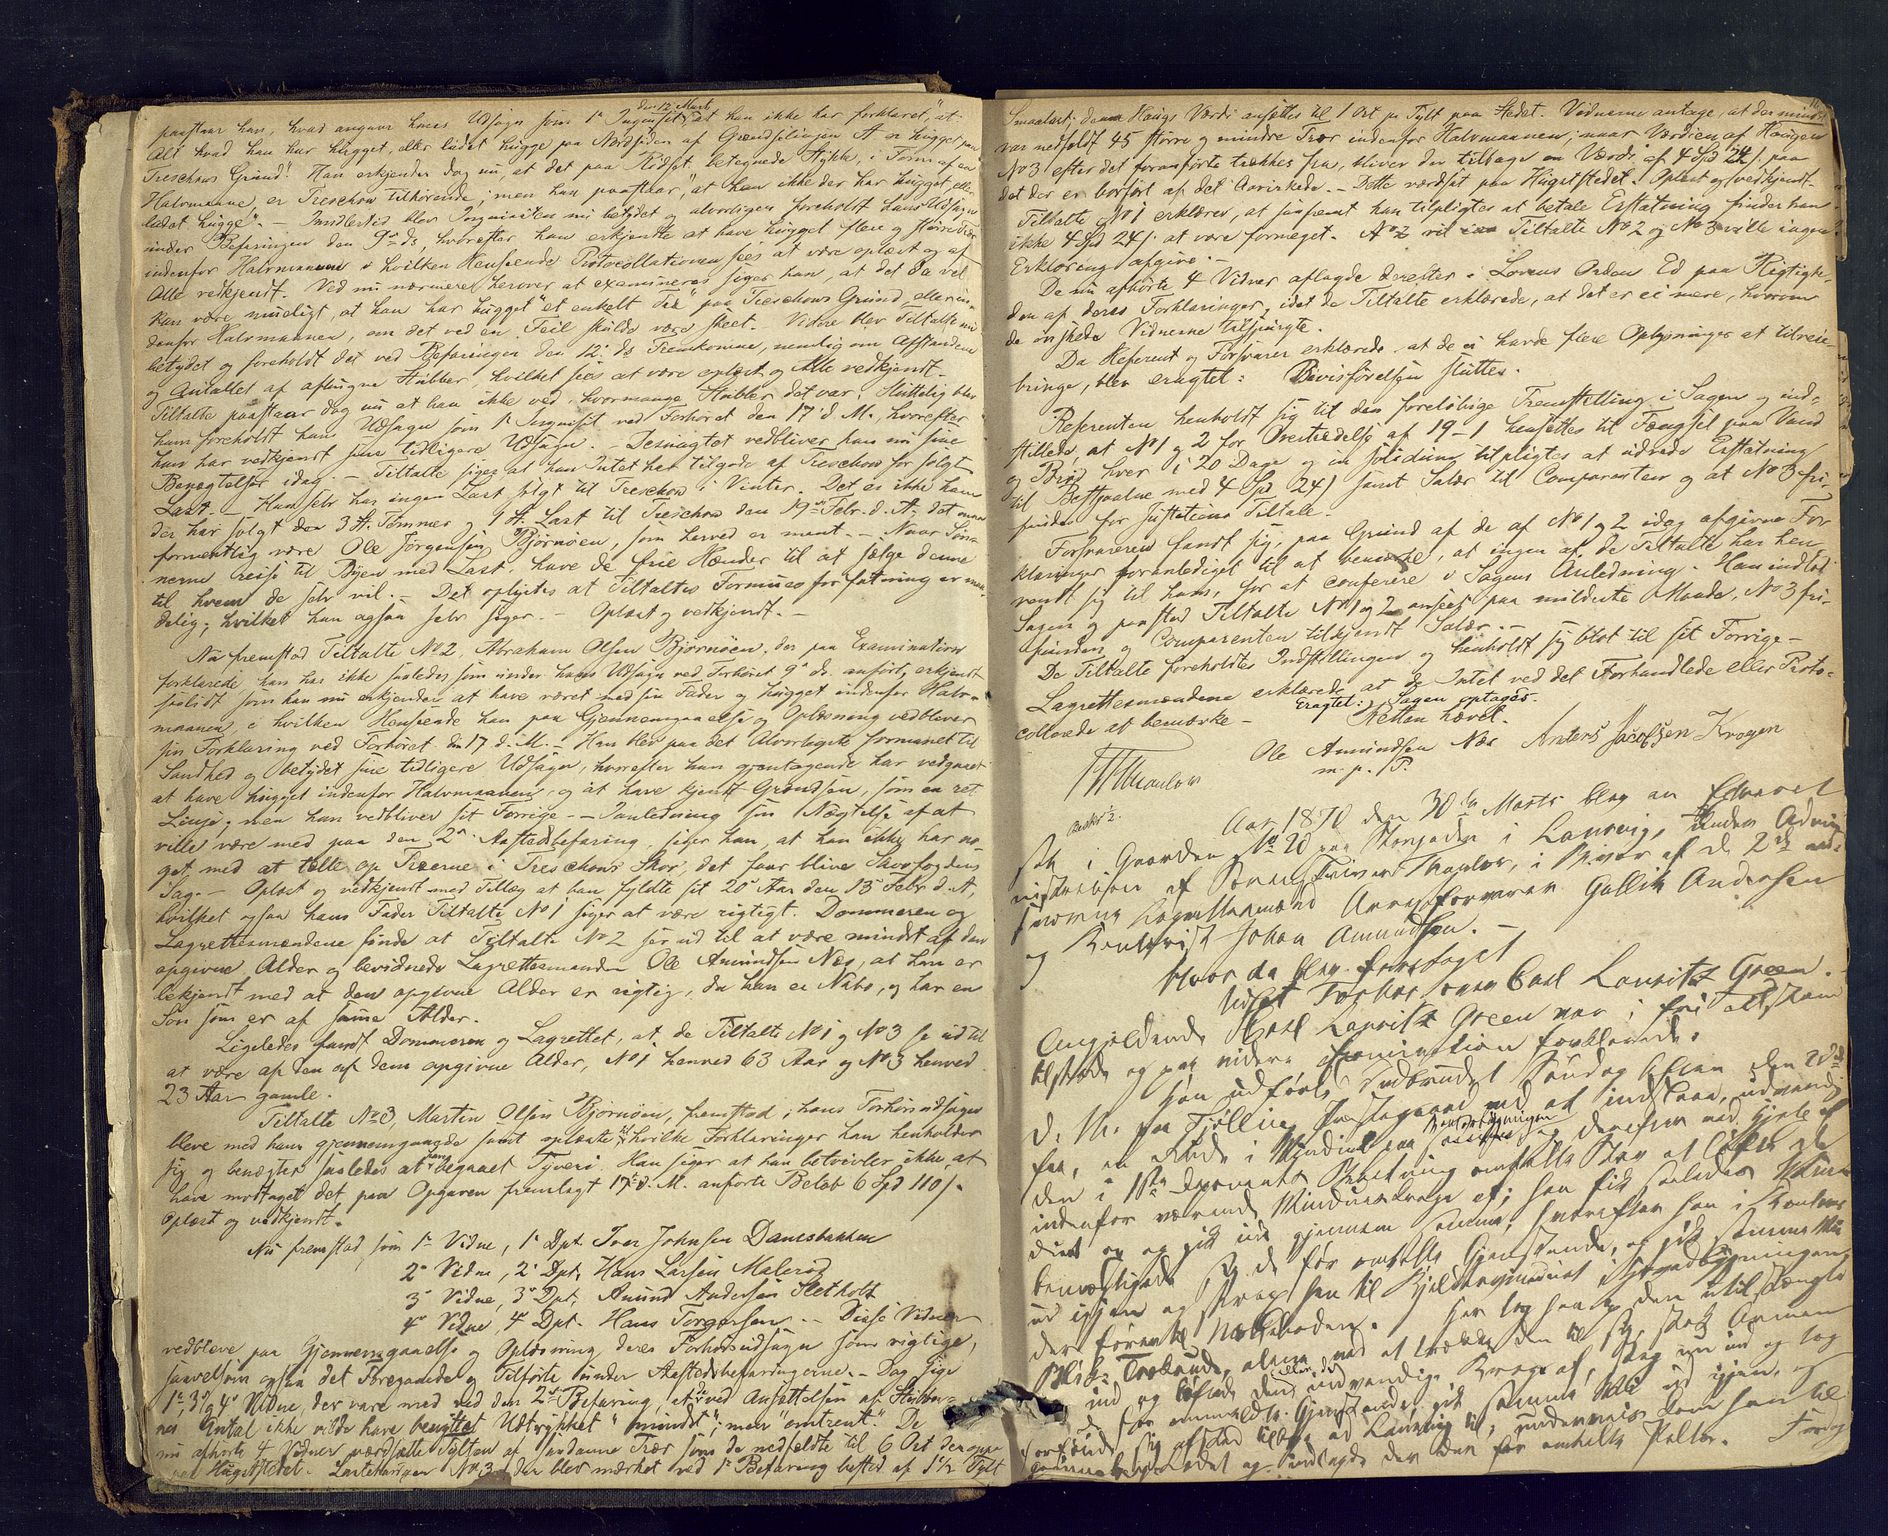 den 12 Marts
paastaar han, hvad angaaer hans Udsagn som 1ste Inquisit, at han ikke har forklaret, "at
Alt hvad han har hugget, eller ladet hugge paa Nordsiden af Grændselinjen A er hugget paa
Treschows Grund". Han erkjender dog nu, at det paa Ridset betegnede Stykke, i Form af en
Halvmaane, er Treschow tilhørende; men han paastaar, "at han ikke der har hugget eller
ladet hugge". – Imidlertid blev Inquisiten nu betydet og alvorligen foreholdt hans Udsagn
under Befaringen den 9de ds, hvorefter han erkjendte at have hugget flere og større Træer
indenfor Halvmaanen i hvilken Henseende Protocollationen sees at være oplæst og af
Alle vedkjendt. Ved nu nærmere herover at examineres siger han, at det da vel
kan være mueligt, at han har hugget "et enkelt Træ" paa Treschows Grund, eller in-
denfor Halvmaanen, om det ved en Feil skulde være skeet. – Videre blev Tiltalte nu
betydet og foreholdt det ved Befaringen den 12. ds Fremkomne, nemlig om Afstanden
og Antallet af afhugne Stubber, hvilket sees at være oplæst og Alle vedkjendt.
Tiltalte paastaar dog nu at han ikke ved, hvormange Stubber det var. Sluttelig blev
ham foreholdt han Udsagn som 1ste Inquisit ved Forhøret den 17 d. M., hvorefter
han har vedkjendt sine tidligere Udsagn. – Desuagtet vedbliver han nu sine
Benægtelser idag. – Tiltalte siger at han Intet har tilgode af Treschow for solgt
Last. – Han selv har ingen Last solgt til Treschow i Vinter. Det er ikke ham
der har solgt den 3 St. Tømmer og 1 St. Last til Treschow den 19 Febr. d. A; det maa
formentlig være Ole Jørgensen Bjørnøen, som herved er ment. – Naar Søn-
nerne reise til Byen med Last, have de frie Hænder til at sælge denne
til hvem de selv vil. – Det oplystes at Tiltaltes Formuesforfatning er maa-
delig; hvilket han ogsaa selv siger. – Oplæst og vedkjendt. –
Nu fremstod Tiltalte No 2, Abraham Olsen Bjørnøen, der paa Examination
forklarede han har ikke saaledes som under hans Udsagn ved Forhøret 9de ds. anført, erkjendt
saalidt som han nu erkjender at have været med sin Fader og hugget indenfor Halv-
maanen, i hvilken Henseende han paa Gjennemgaaelse og Oplæsning vedbliver
sin Forklaring ved Forhøret den 17 d. M. – Han blev paa det Alvorligste formanet til
Sandhed og betydet sine tidligere Udsagn, hvorefter han gjentagende har vedgaaet
at have hugget indenfor Halvmaanen, og at have kjendt Grændsen, som en ret
Linje, men han vedbliver sit Forrige. – I Anledning sin Nægtelse af at
ville være med paa den 2den Aastedsbefaring, siger han, at han ikke har no-
get med at telle op Træerne i Treschows Skov, det faar blive Skovfogdens
Sag. – Oplæst og vedkjendt med Tillæg at han fyldte sit 20de Aar den 13 Febr d. A,
hvilket ogsaa hans Fader Tiltalte No 1 siger at være rigtigt. Dommeren og
Lagrettesmændene finde at Tiltalte No 2 ser ud til at være mindst af den
opgivne Alder og bevidnede Lagrettesmanden Ole Amundsen Næs, at han er
bekjendt med at den opgivne Alder er rigtig, da han er Nabo, og har en
Søn som er af samme Alder.
Ligeledes fandt Dommeren og Lagrettet, at de Tiltalte No 1 og No 3 se ud til
at være af den af dem opgivne Alder, No 1 henved 63 Aar og No 3 henved
23 Aar gamle.
Tiltalte No 3, Martin Olsen Bjørnøen, fremstod; hans Forhørsudsagn
bleve med ham gjennemgaagede samt oplæste til hvilke Forklaringer han henholder
sig og benægter saaledes at have begaaet Tyveri. Han siger at han betvivler ikke, at
have modtaget det paa Opgaven fremlagt 17 d. M. anførte Beløb 6 Spd 110 s.
Oplæst og vedkjendt.
Nu fremstod, som 1ste Vidne, 1ste Dpt. Iver Johnsen Danesbakken
2de Vidne, 2de Dpt, Hans Larsen Malerød
3de Vidne, 3de Dpt, Amund Andersen Sletholt
4de Vidne, 4de Dpt. Hans Torgersen. – Disse Vidner
vedbleve paa Gjennemgaaelse og Oplæsning deres Forhørsudsagn som rigtige,
saavelsom ogsaa det Foregaaede og Tilførte under Aastedsbefaringerne. – Dog sige
1ste, 3de og 4de Vidne, der vare med ved den 2den Befaring, at de ved Ansættelsen af Stubber-
nes Antal ikke vilde have benyttet Udtrykket "mindst"; men "omtrent". De
nu afhørte 4 Vidner værdsatte Tylten af saadanne Træer som de nedfældte til 6 Ort der oppe
paa Hugststedet. No 3, der blev mærket ved 1ste Befaring bestod af 1 1/2 Tylt
Smaalast; denne Haugs Værdi ansættes til 1 Ort pr Tylt paa Stedet. Vidnerne antage, at der mindst
var nedfældt 45 større og mindre Træer indenfor Halvmaanen; naar Værdien af Haugen
No 3 efter det foranførte trækkes fra, bliver der tilbage en Værdi af 4 Spd 24 s. paa
det der er bortført af det Aavirkede. – Dette værdsat paa Hugststedet. Oplæst og vedkjendt. –
Tiltalte No 1 erklærer, at saafremt han tilpligtes at betale Erstatning finder han
ikke 4 Spd 24 s. at være formeget. Tiltalte No 2 og No 3 ville ingen
Erklæring afgive. –
De nu afhørte 4 Vidner aflagde derefter i Lovens Orden Ed paa Rigtighe-
den af deres Forklaringer, idet de Tiltalte erklærede, at det er ei mere, hvorom
de ønskede Vidnerne tilspurgte.
Da Referent og Forsvarer erklærede at de ei havde flere Oplysninger at tilveie-
bringe, blev eragtet: Bevisførelsen sluttes.
Referenten henholdt sig til den foreløbige Fremstilling i Sagen og ind-
stillede, at No 1 og 2 for Overtrædelse af 19–1 hensættes til Fængsel paa Vand
og Brød hver i 20 Dage og in solidum tilpligtes at udrede Erstatning
til Bestjaalne med 4 Spd 24 s samt Salær til Comparenten og at No 3 fri-
findes for Justitiens Tiltale.
Forsvareren fandt sig, paa Grund af de af No 1 og 2 idag afgivne For-
klaringer foranlediget til at bemærke, at ingen af de Tiltalte har hen-
vendt sig til ham, for at conferere i Sagens Anledning. Han indlod
Sagen og paastod Tiltalte No 1 og 2 anseet paa mildeste Maade, No 3 fri-
funden og Comparenten tilkjendt Salær. –
De Tiltalte foreholdtes Indstillingen og henholdt sig blot til sit Forrige –
Lagrettesmændene erklærede at de Intet ved det Forhandlede eller Proto-
collerede at bemærke – Eragtet: Sagen optages.
Retten hævet.
Ole Amundsen Næs Anters Jacobsen Krogen
m. p. P.
Aar 1870 den 30te Marts blev en Extraret
sat i Gaarden No 20 paa Storgaden i Laurvig, under Admi-
nistration af Sorenskriver Thaulow, i Nærvær af de 2de ed-
svorne Lagrettesmænd Arrestforvarer Gullik Andersen
og Johan Amundsen. –
Hvor da blev foretaget
Udvt Forhør over Carl Lauritz Green. –
Angjeldende Carl Lauritz Green var i fri Tilstand
tilstede og paa videre Examination forklarede:
Han udførte Indbruddet Søndag Aften den 20de
d. M. paa Tjølling Præstegaard ved at indslaa, udvendig
fra, en Rude i Vinduet paa Hovedbygningen og derefter ved Hjelp af
den i 1ste Document Beretning omtalte Stav at løfte de
indenfor værende Vindueskroge af; han fik saaledes Vin-
duet op og gik ind gjennem samme, hvorefter han i Kontoret
bemægtigede sig de før omtalte Gjenstande, og gik samme Vei
ud igjen og strax hen til Kjeldervinduet i Hovedbygningen
der fører til Melkeboden. Her tog han op den utilstængte
Rude, alene ved at trække den til sig, stak Armen
ind og løftede den indvendige Krog af, steg nu ind og tog
de før anmeldte Gjenstande, gik samme Vei ud igjen, og
forføiede sig afsted tilbage ad Laurvig til, undervejs kom han til
Ledet og indlagde der den før omtalte Pakke. Forøvrigt